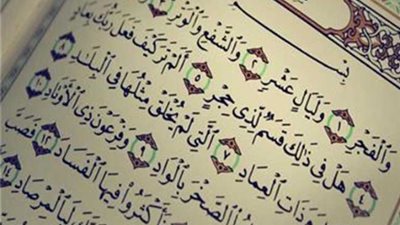 بِسْمِ
وَالْفَجْرِ ١ وَلَيَالٍ عَشْرٍ ٢ وَالشَّفْعِ وَالْوَتْرِ ٣
٤ هَلْ فِي ذَٰلِكَ قَسَمٌ لِّذِي حِجْرٍ ٥ أَلَمْ تَرَ كَيْفَ فَعَلَ رَبُّكَ بِعَادٍ
ذَاتِ الْعِمَادِ ٧ الَّتِي لَمْ يُخْلَقْ مِثْلُهَا فِي الْبِلَٰدِ ٨
الصَّخْرَ بِالْوَادِ ٩ وَفِرْعَوْنَ ذِي الْأَوْتَادِ ١٠
فَأَكْثَرُوا فِيهَا الْفَسَادَ ١٢ فَصَبَّ
لَبِالْمِرْصَادِ ١٤